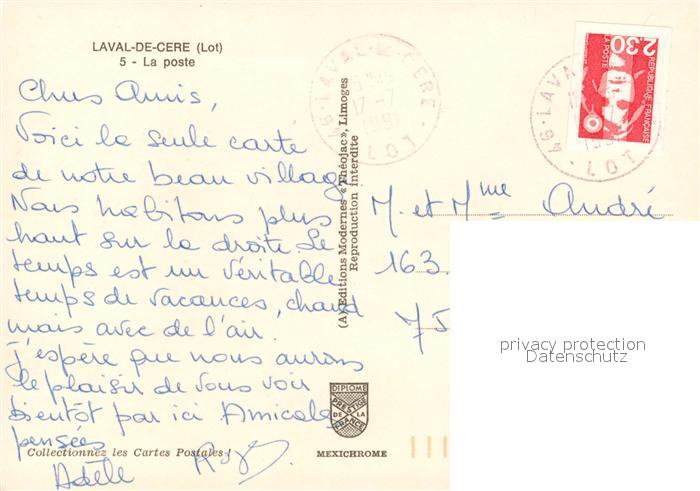 LAVAL-DE-CERE (Lot)
5 - La poste
Chers Amis,
Voici la seule carte
de notre beau village
Nous habitons plus
haut sur la droite. Le
temps est un véritable
temps de vacances, chaud
mais avec de l'air.
J'espère que nous aurons
le plaisir de vous voir
bientôt par ici Amicales
pensées
Adèle Roger
Collectionnez les Cartes Postales !
(A) Editions Modernes « Théojac », Limoges
Reproduction interdite
DIPLOME
PRESTIGE
DE LA
FRANCE
MEXICHROME
46-LAVAL-DE-CERE
LOT
2,30
LA POSTE
RÉPUBLIQUE FRANÇAISE
46-LAVAL
LOT
M. et Mme André
163
75
privacy protection
Datenschutz